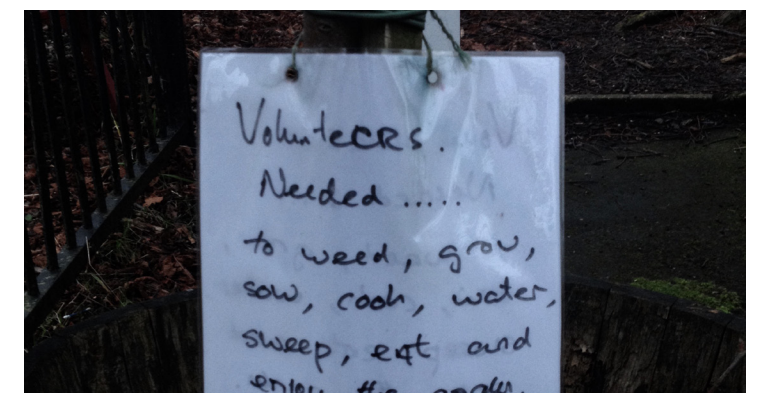 Volunteers.
Needed .....
to weed, grow,
sow, cook, water,
sweep, eat and
enjoy the